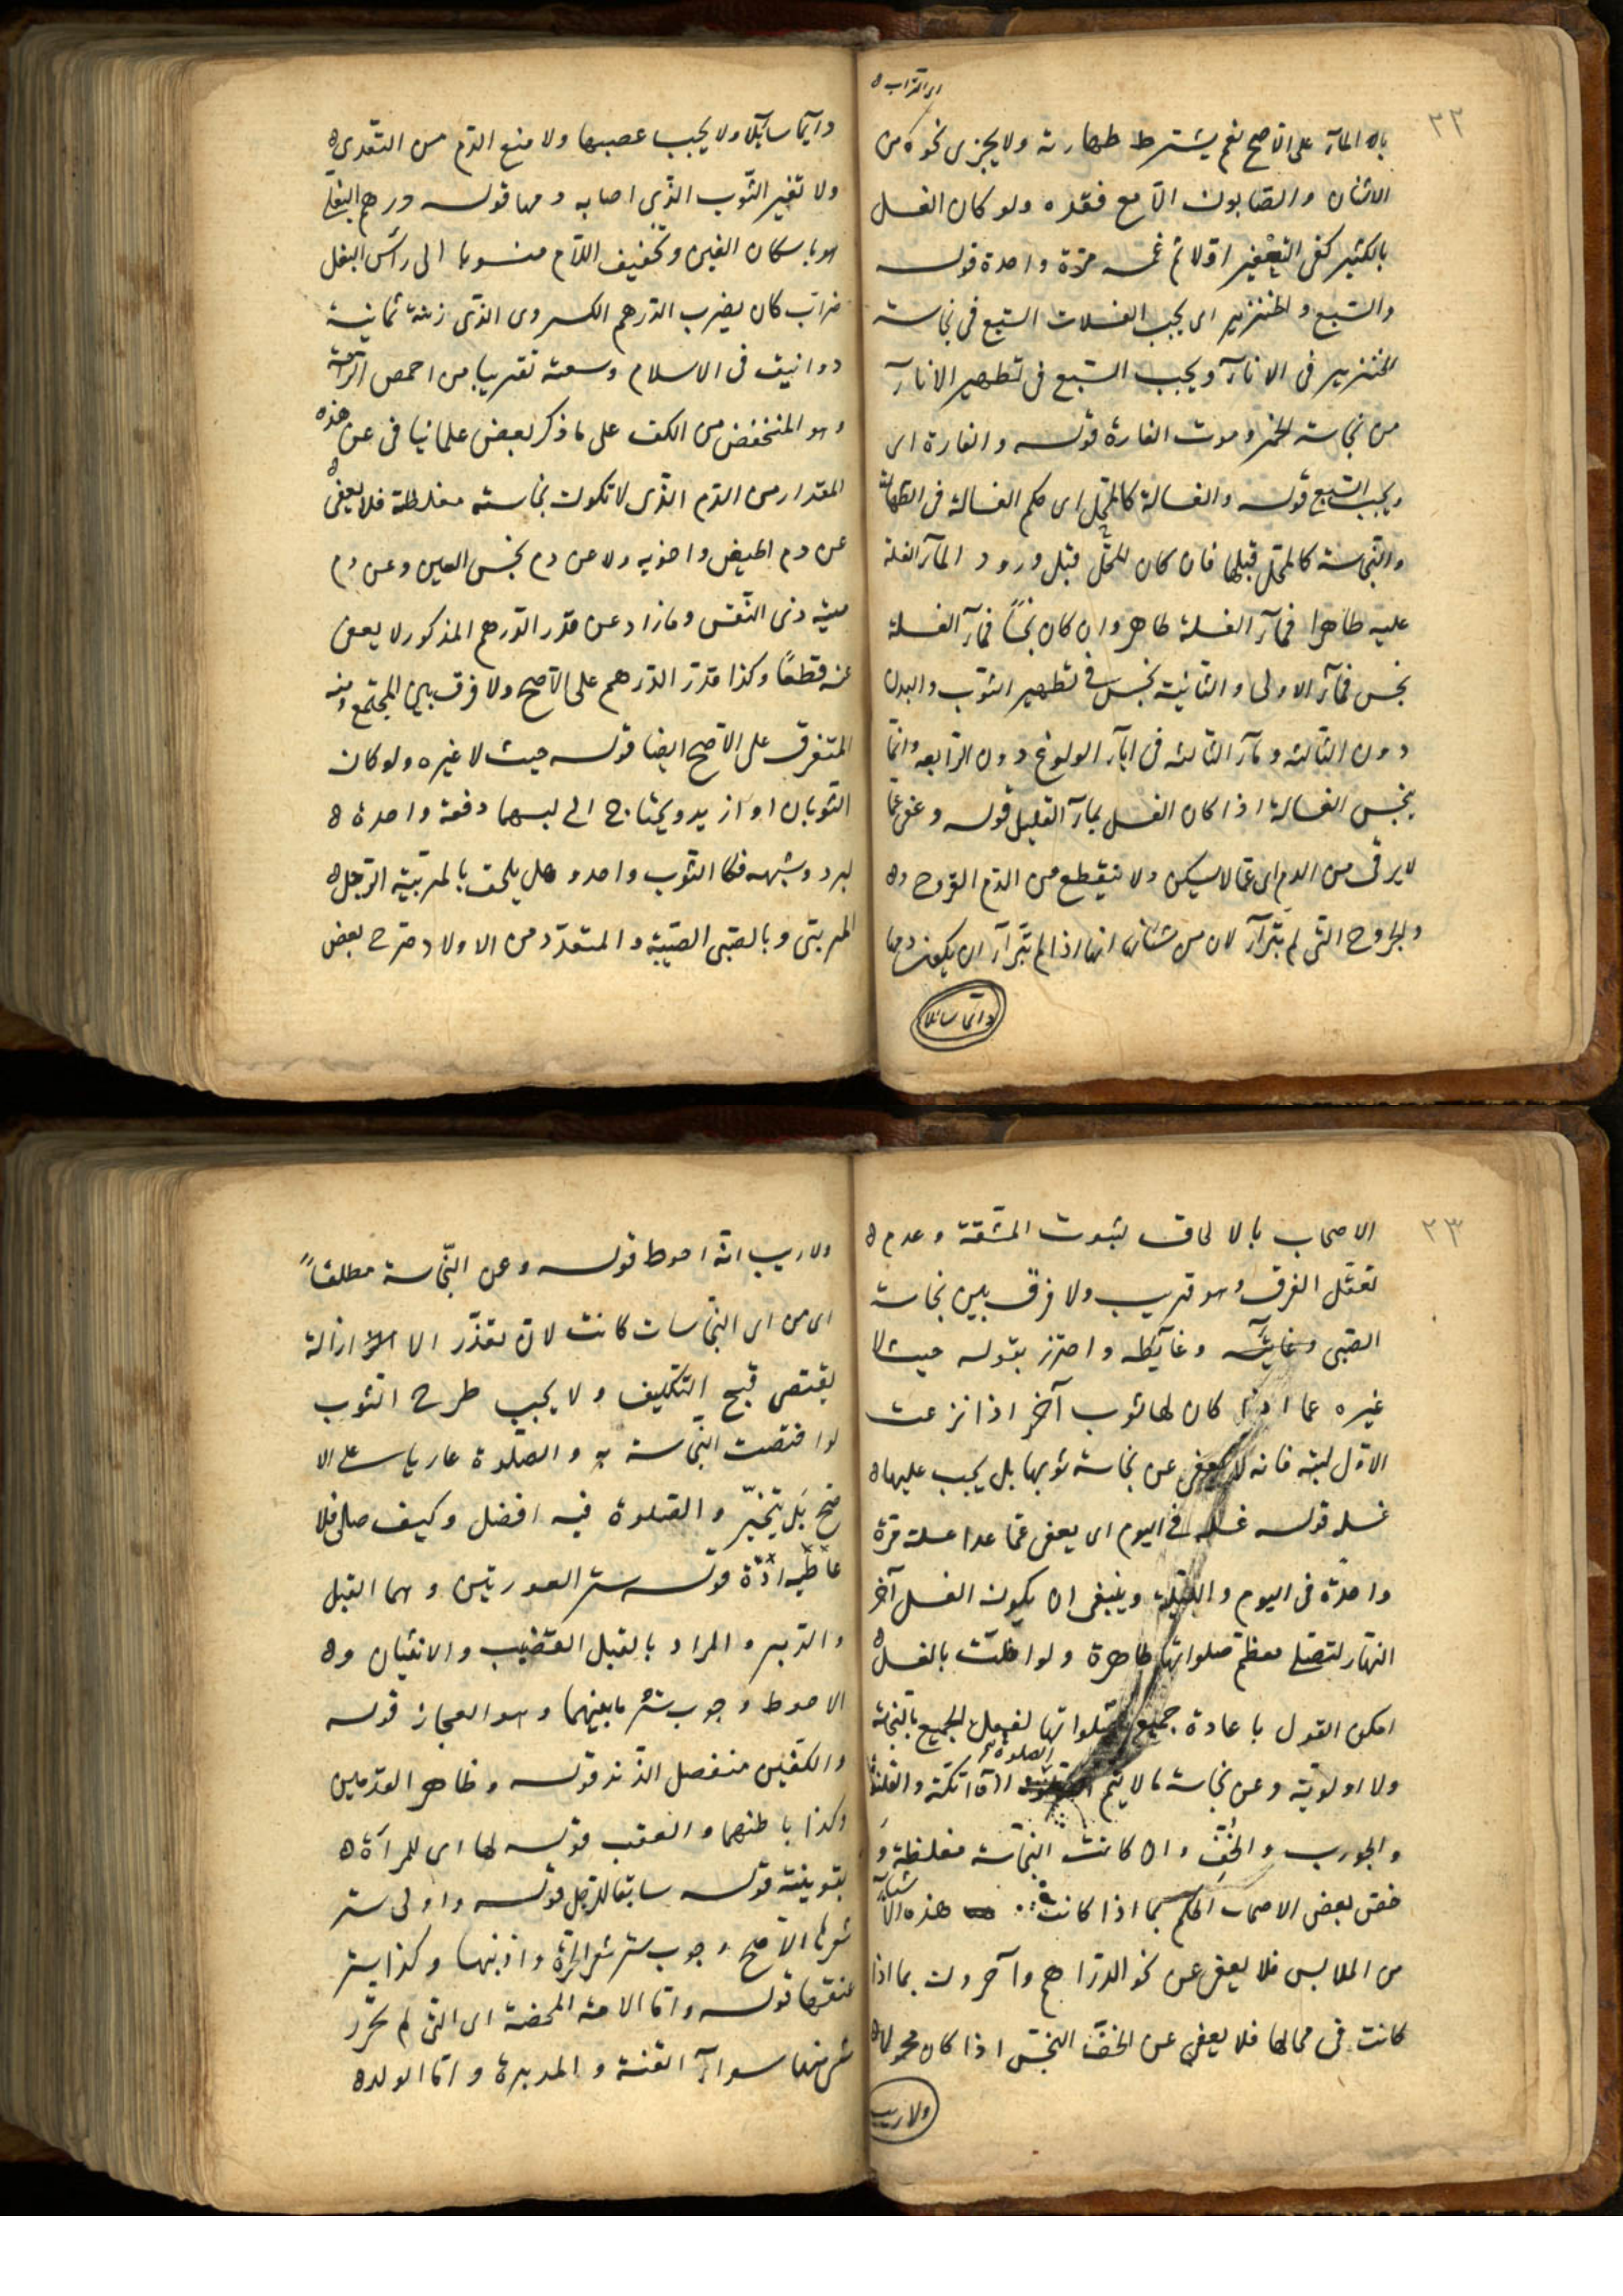 اى التراب ه
٢٢
بالمآء على الاصح نعم يشترط طهارته ولا يجزى نحوه من
الاشنان والصابون الا مع فقده ولو كان الغسل
بالكثير كفى التعفير اولا ثم غمسه مرّة واحدة قوله
والسّبع و الخنزير اى يجب الغسلات السّبع فى نجاسة
الخنزير فى الانآء ويجب السّبع فى تطهير الانآء
من نجاسة الخمر وموت الفارة قوله والفارة اى
ويجب السّبع قوله والغسالة كالمحل اى حكم الغسالة فى الطهارة
والنّجاسة كالمحل قبلها فان كان للمحل قبل ورود المآء الغسلة
عليه طاهرا فمآء الغسلة طاهر وان كان نجسًا فمآء الغسلة
نجس فمآء الاولى والثانية نجس فى تطهير الثوب والبدن
دون الثالثه ومآء الثالثه فى انآء الولوغ دون الرّابعه وانّما
ينجس الغسالة اذا كان الغسل بمآء القليل قوله وعفى عمّا
لا يرقى من الدم اى عمّا لا يسكن ولا ينقطع من الدّم القروح ه
والجروح التى لم تبرآء لان من شانها انها اذا لم تبرآء ان يكون دمها
دائما سائلا
دآيما سآئلا ولا يجب عصبها ولا منع الدّم من التّعدى ه
ولا تغير الثّوب الذّى اصابه دمها قوله درهم البغلى
هو باسكان الغين وتخفيف اللّام منسوبا الى رأس البغل
ضرّاب كان يضرب الدّرهم الكسروى الذّى زنته ثمانية
دوانيق فى الاسلام وسعته تقريبا من اخمص الرّاحة
وهو المنخفض من الكف على ما ذكر بعض علمائنا فى عن هذه
المقدار من الدّم الذّى لا تكون نجاسته مغلظة فلا يعفى ه
عن دم الحيض واخويه ولا عن دم نجس العين وعن دم
ميتة ذى النّفس وما زاد عن قدر الدّرهم المذكور لا يعفى
عنه قطعًا وكذا قدر الدّرهم على الاصح ولا فرق بين المجتمع منه
المتفرق على الاصح ايضا قوله حيث لا غيره ولو كان
الثوبان او ازيد ويحتاج الى لبسهما دفعة واحدة ه
لبرد وشبهه فكا الثوب واحد وهل يلحق بالمربّية الرّجل ه
المربّى وبالصّبى الصّبيّة و المتعدّد من الاولاد صرّح بعض
٢٣
الاصحاب بالالحاق لثبوت المشقّة وعدم ه
تعقّل الفرق وهو قريب ولا فرق بين نجاسة
الصّبى وغايته وغآيطه واحترز بقوله حيث لا
غيره عما اذا كان لها ثوب آخر اذا نزعت
الاوّل لبسته فانه لا يعفى عن نجاسة ثوبها بل يجب عليها ه
غسله قوله غسله فى اليوم اى يعفى عمّا عدا غسله مرّة
واحدة فى اليوم والليلة وينبغى ان يكون الغسل آخر
النهار لتصلى معظم صلواتها طاهرة ولو اخلت بالغسل ه
امكن القول باعادة جميع صلواتها لفعل الجميع بالنجاسة
ولا اولوية وعن نجاسة ما لا يتم الصلوة التكة والقلنسوة
والجورب والخفّ وان كانت النّجاسة مغلظة و
خصّ بعض الاصحاب الحكم بما اذا كانت هذه الاشيآء
من الملابس فلا يعفى عن نحو الدرّاهم وآخرون بما اذا
كانت فى محالها فلا يعفى عن الخفّ النجس اذا كان محمولا ه
ولا ريب
ولا ريب انّه احوط قوله وعن النّجاسة مطلقاً
اى من اى النّجاسات كانت لان تعذّر الازالة
يقتضى قبح التكليف ولا يجب طرح الثوب
لو اختصت النّجاسة به والصّلوة عاريا على الا
صح بل يتخيّر والصلوة فيه افضل وكيف صلى فلا
اعادة قوله ستر العورتين وهما القبل
والدّبر والمراد بالقبل القضيب والانثيان و ه
الاحوط وجوب ستر ما بينهما وهو العجان قوله
والكفّين منفصل الزند قوله وظاهر القدمين
وكذا باطنهما والعقب قوله لها اى للمرأة ه
بقرينة قوله سابقا للرّجل قوله واولى ستر
شعرها الاصح وجوب ستر شعر الحرّة واذنيها وكذا ستر
عنقها قوله وامّا الامة المحضة اى التى لم تحرّر
شئ منها سوآء القنّة و المدبرة و امّ الولد ه